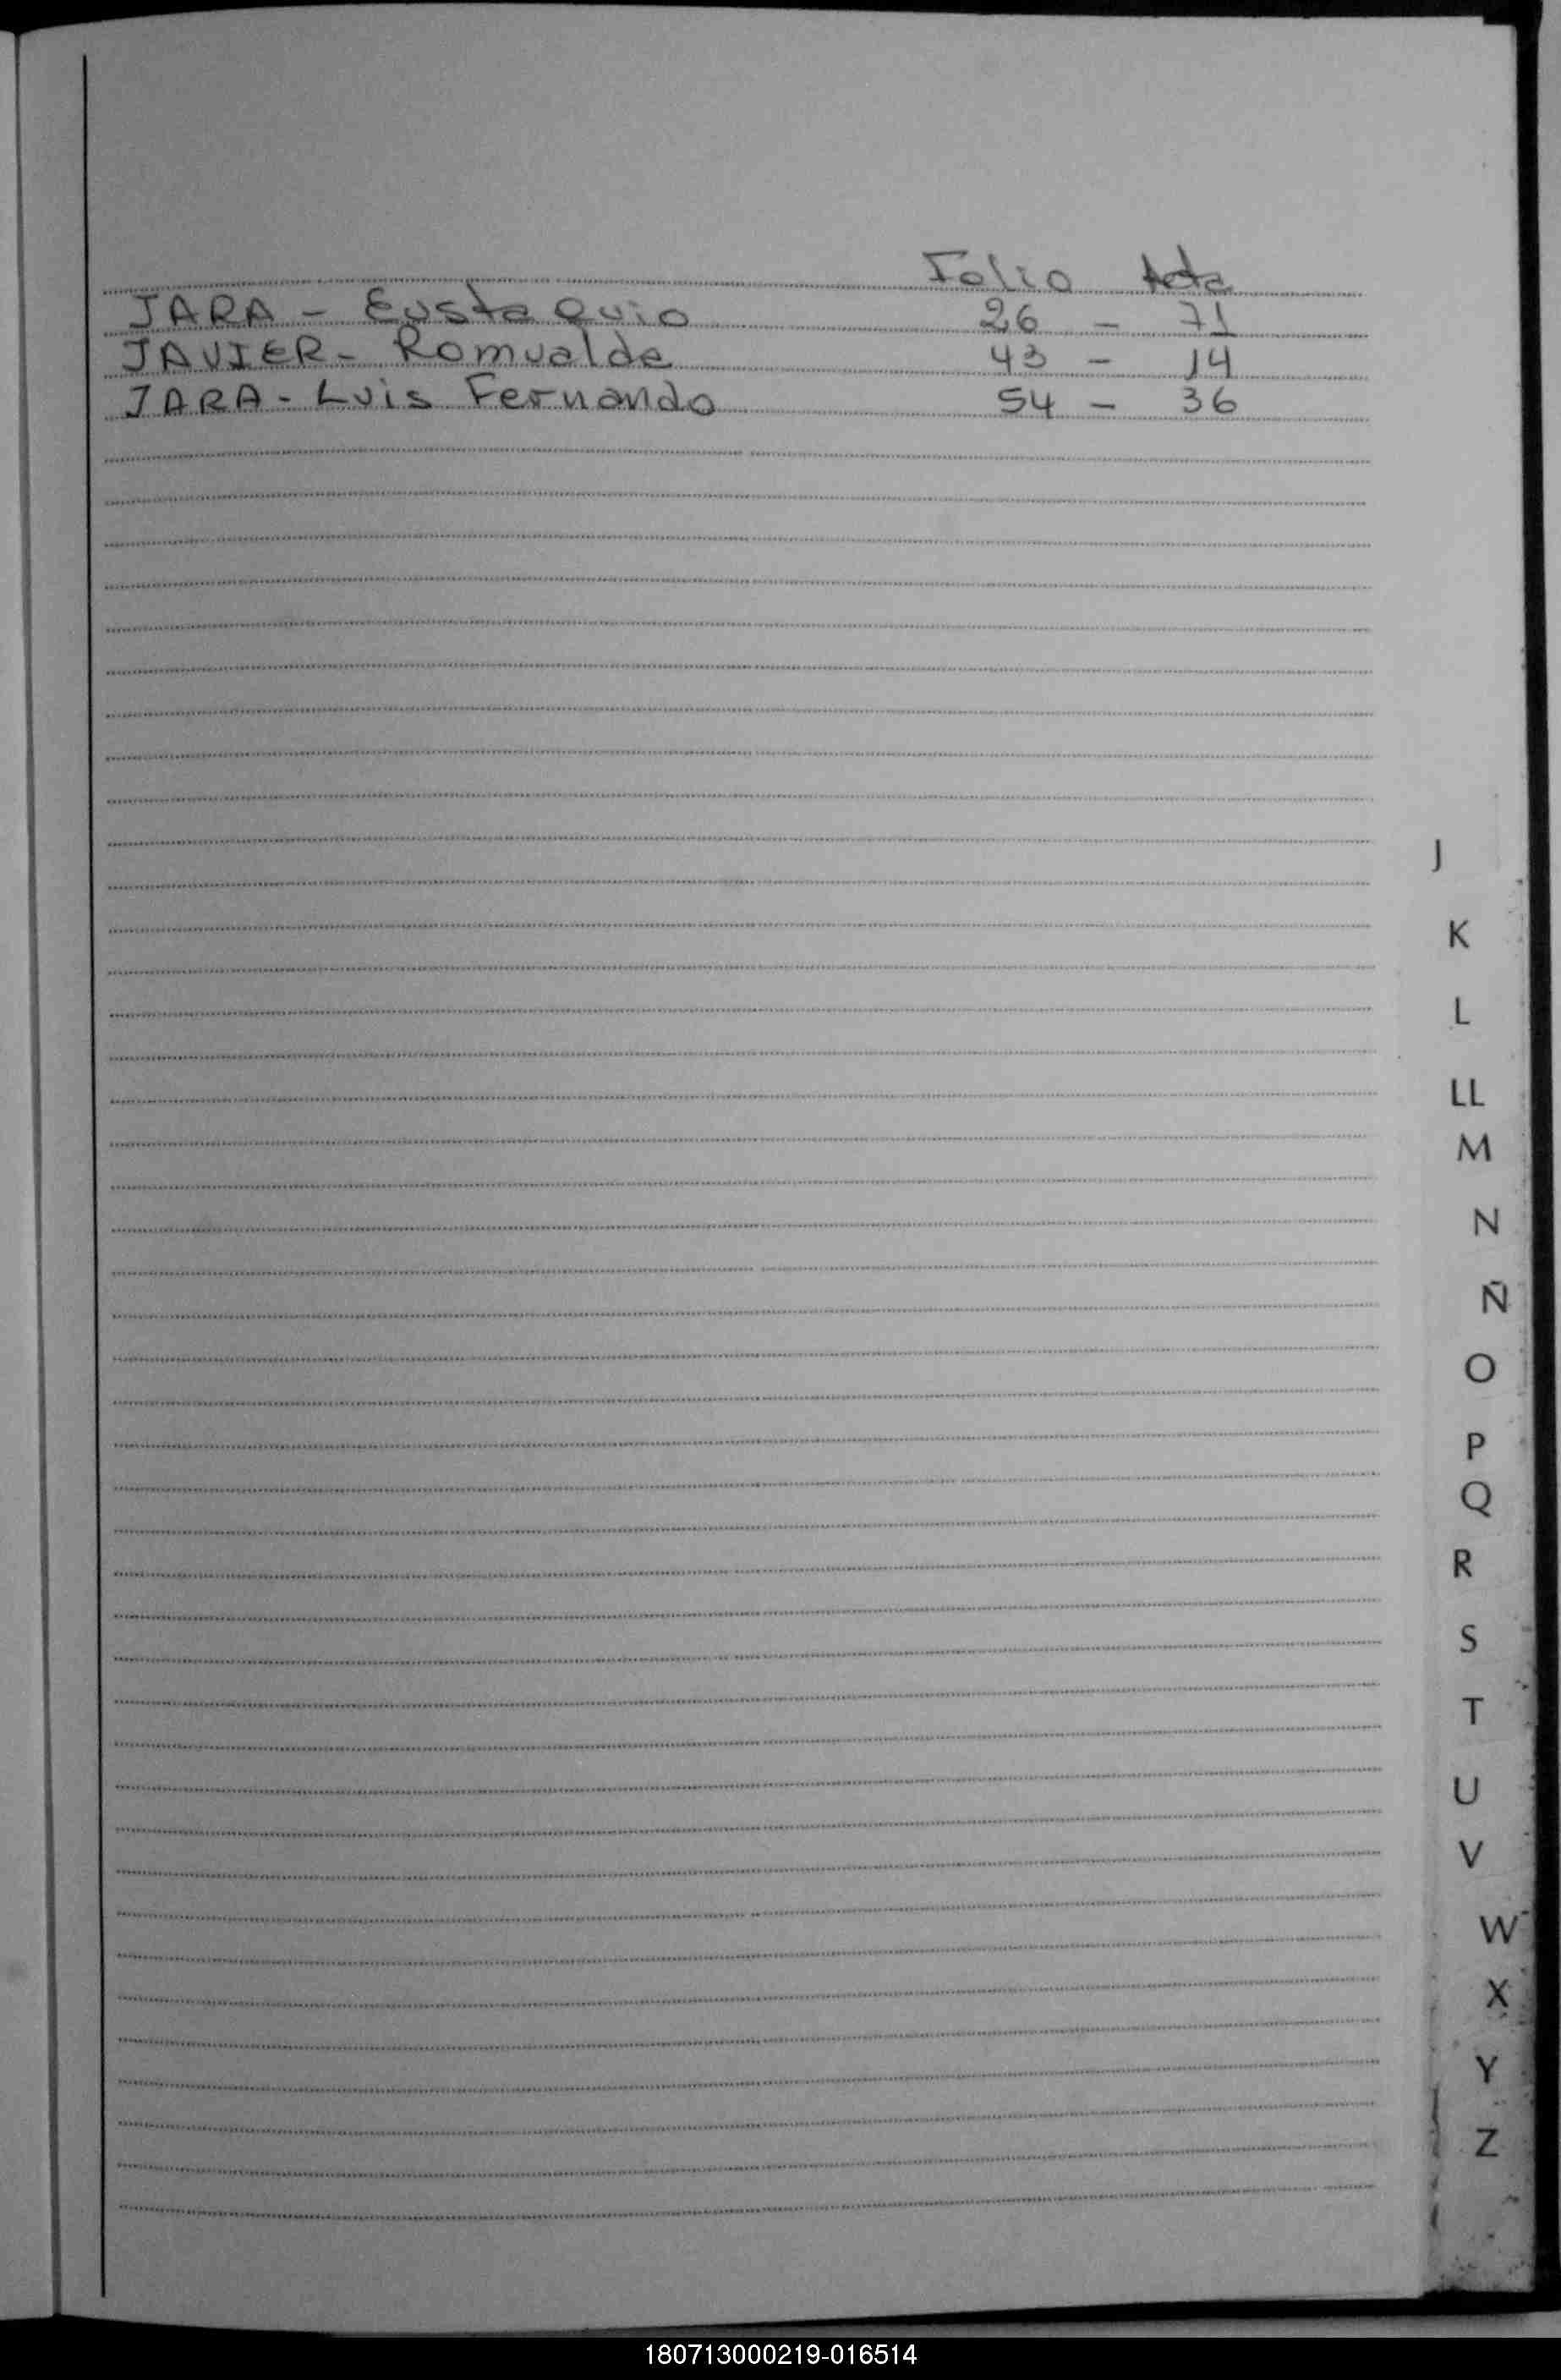 Folio Acta
JARA - Eustaquio 26 - 71
JAVIER - Romualda 43 - 14
JARA - Luis Fernando 54 - 36
J
K
L
LL
M
N
Ñ
O
P
Q
R
S
T
U
V
W
X
Y
Z
180713000219-016514